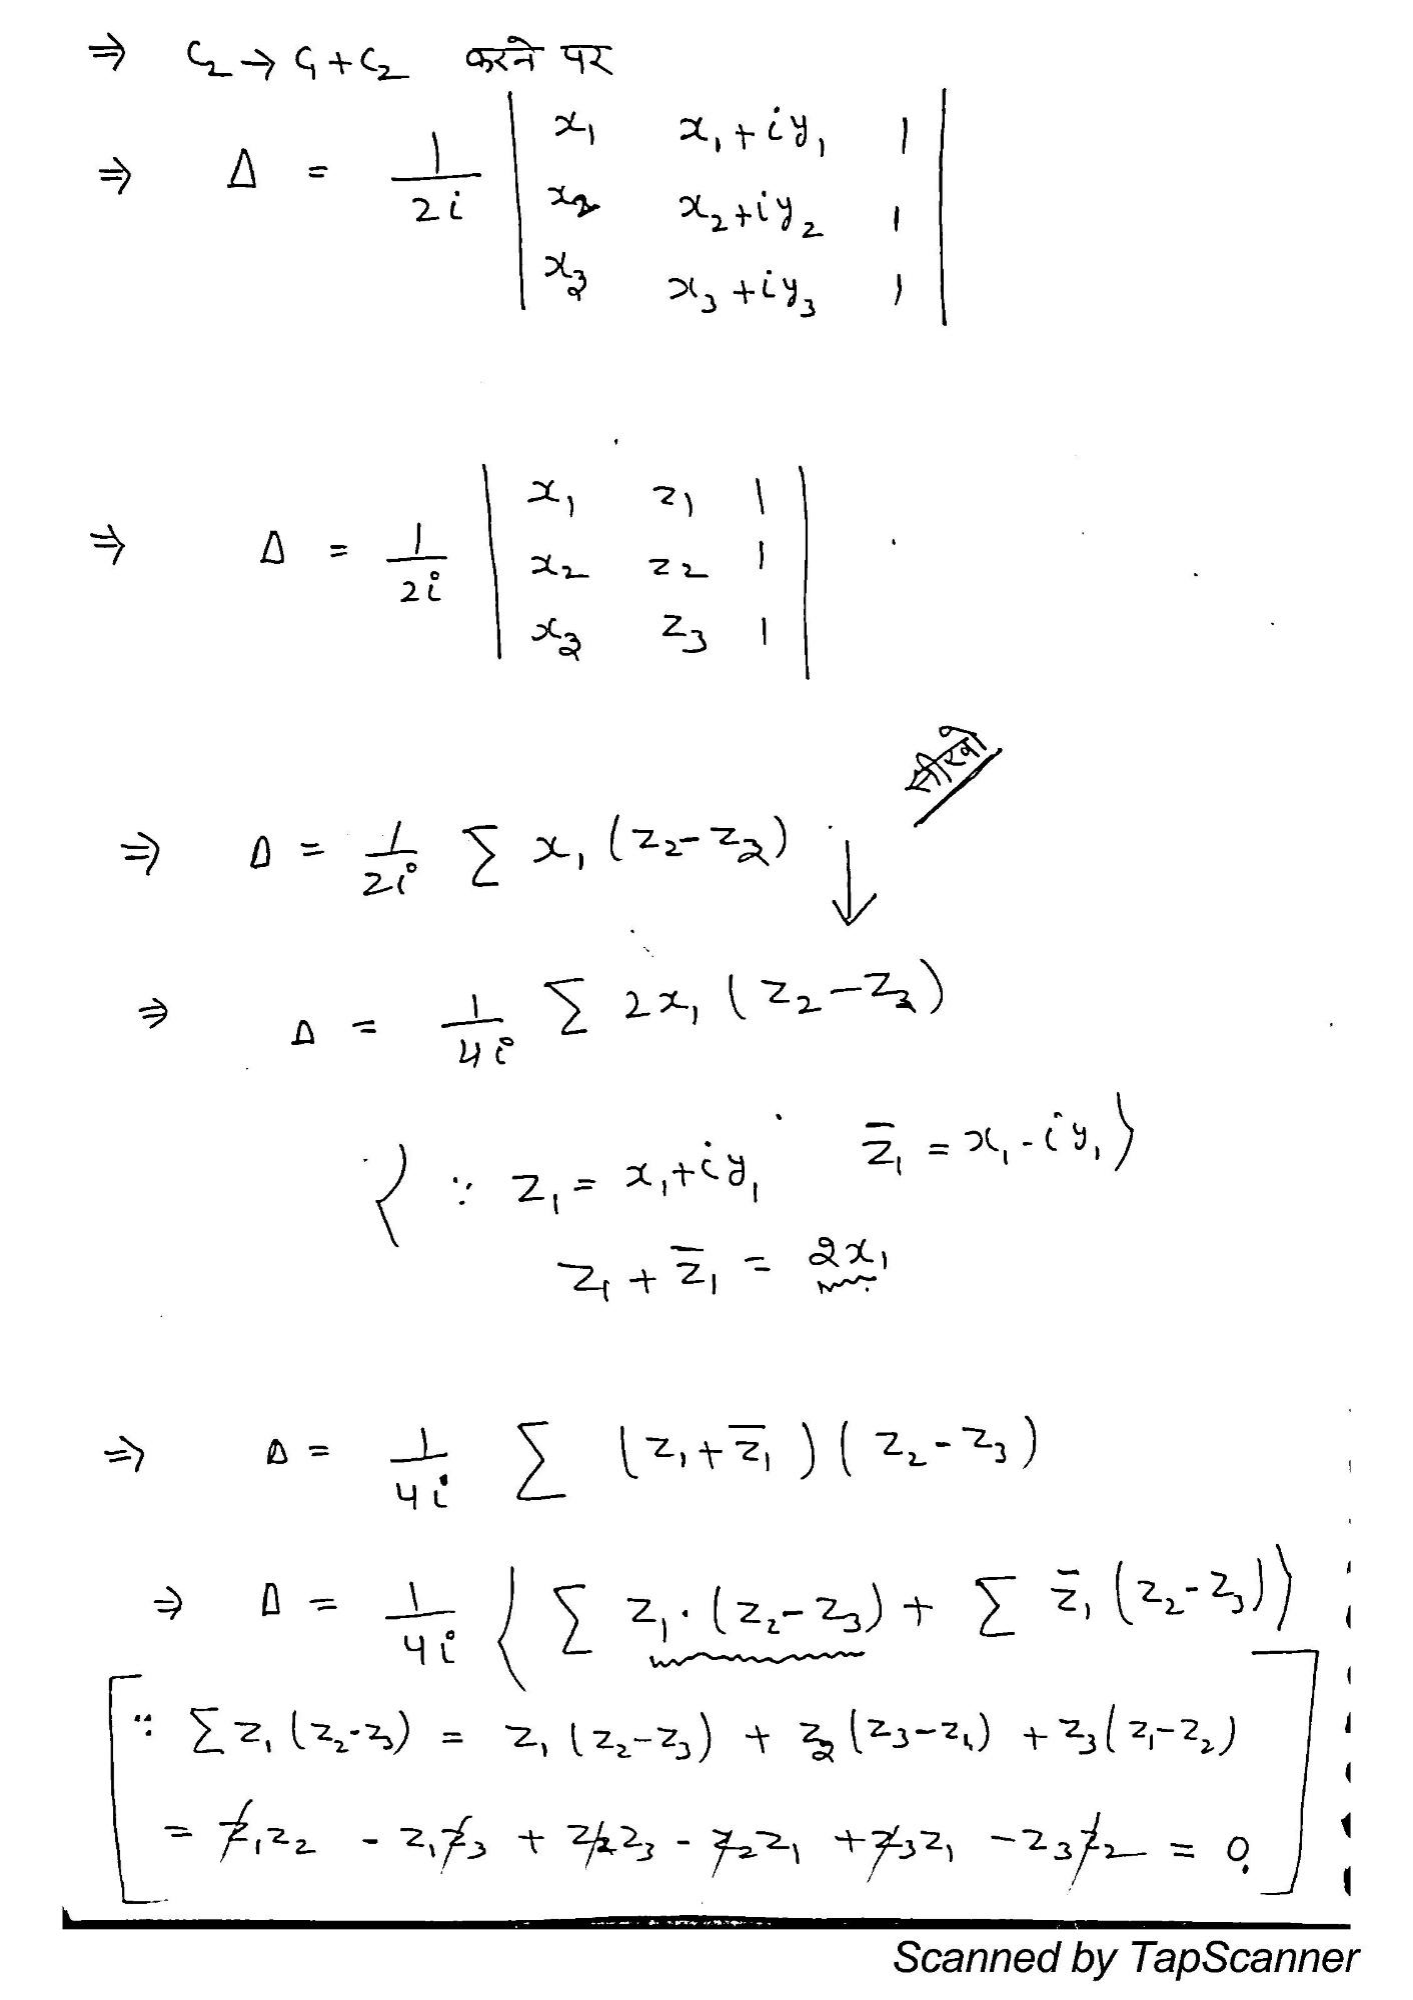 ⇒ C₂ → C₁ + C₂ करने पर
⇒ Δ = 1/2i | x₁ x₁+iy₁ 1 |
| x₂ x₂+iy₂ 1 |
| x₃ x₃+iy₃ 1 |
⇒ Δ = 1/2i | x₁ z₁ 1 |
| x₂ z₂ 1 |
| x₃ z₃ 1 |
सीखो
⇒ Δ = 1/2i Σ x₁ (z₂-z₃) ↓
⇒ Δ = 1/4i Σ 2x₁ (z₂-z₃)
{ ∵ z₁ = x₁+iy₁ z̄₁ = x₁-iy₁ }
z₁ + z̄₁ = 2x₁
⇒ Δ = 1/4i Σ (z₁+z̄₁) (z₂-z₃)
⇒ Δ = 1/4i { Σ z₁·(z₂-z₃) + Σ z̄₁ (z₂-z₃) }
[ ∵ Σ z₁ (z₂-z₃) = z₁ (z₂-z₃) + z₂ (z₃-z₁) + z₃ (z₁-z₂)
= z₁z₂ - z₁z₃ + z₂z₃ - z₂z₁ + z₃z₁ - z₃z₂ = 0. ]
Scanned by TapScanner